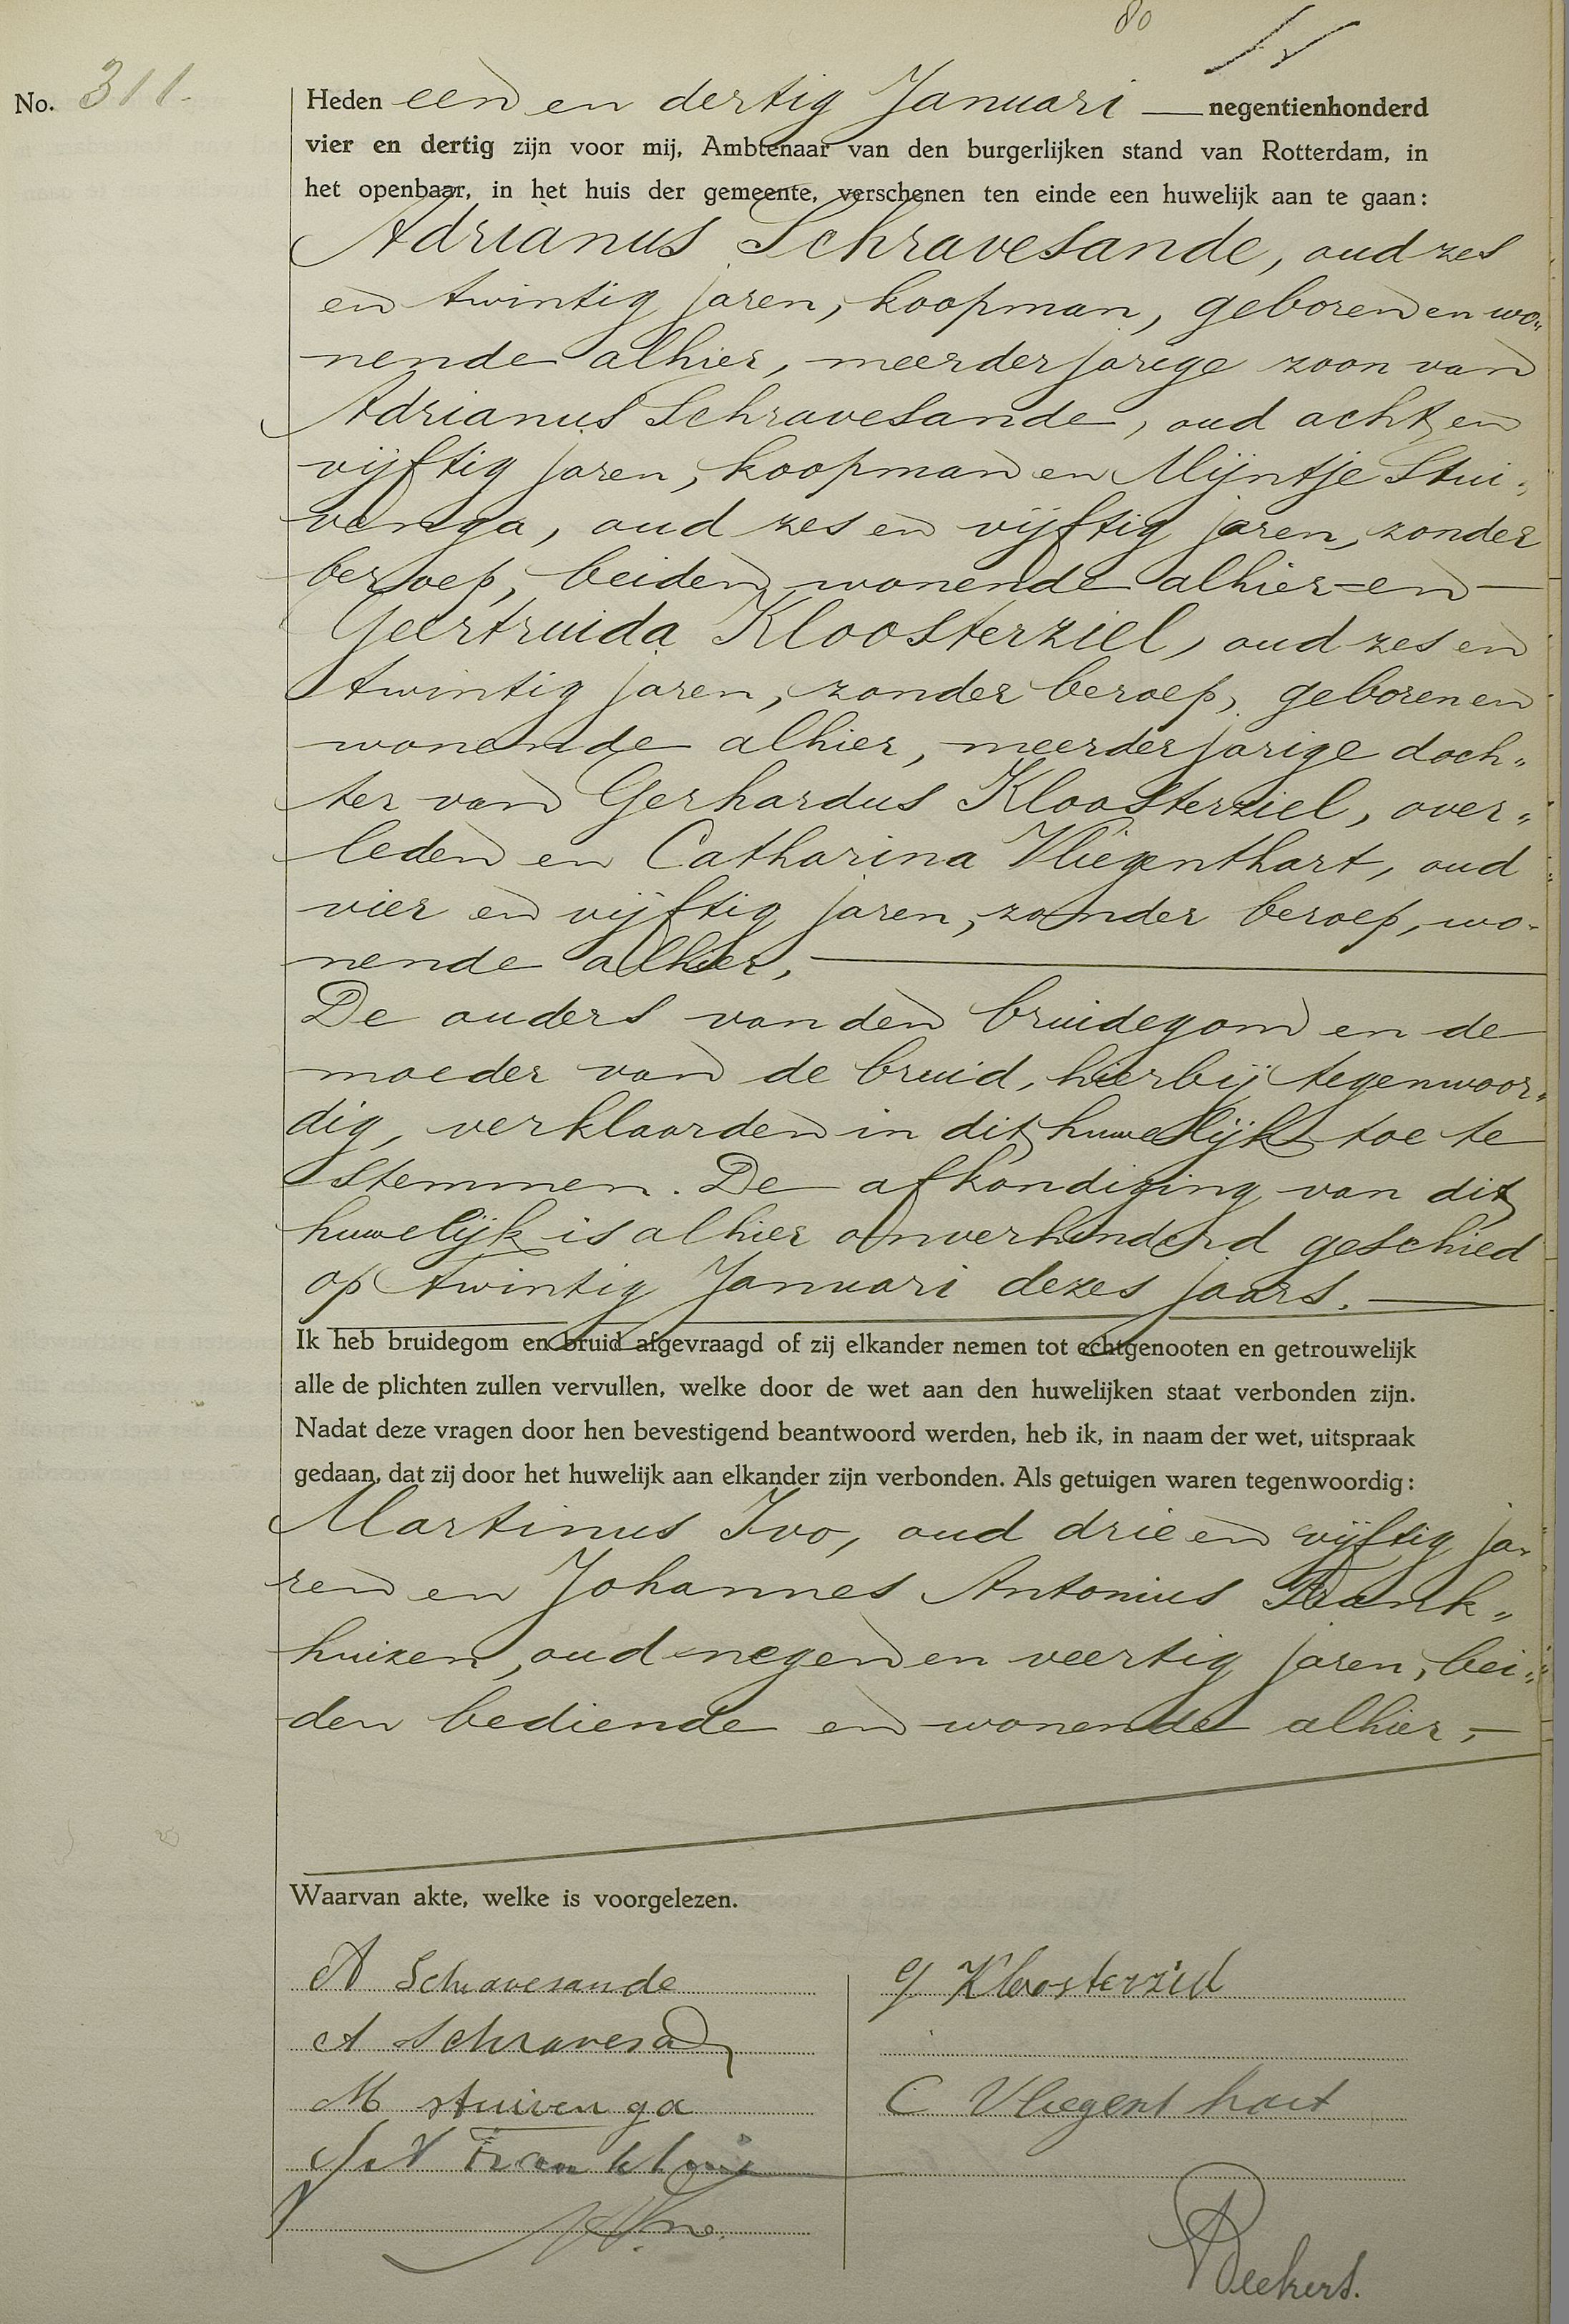 80
No. 311.
Heden een en dertig Januari — negentienhonderd
vier en dertig zijn voor mij, Ambtenaar van den burgerlijken stand van Rotterdam, in
het openbaar, in het huis der gemeente, verschenen ten einde een huwelijk aan te gaan:
Adrianus Schravesande, oud zes
en twintig jaren, koopman, geboren en wo„
nende alhier, meerderjarige zoon van
Adrianus Schravesande, oud acht en
vijftig jaren, koopman en Mijntje Stui„
venga, oud zes en vijftig jaren, zonder
beroep, beiden wonende alhier en —
Geertruida Kloosterziel, oud zes en
twintig jaren, zonder beroep, geboren en
wonende alhier, meerderjarige doch„
ter van Gerhardus Kloosterziel, over„
leden en Catharina Vliegenthart, oud
vier en vijftig jaren, zonder beroep, wo„
nende alhier. —
De ouders van den bruidegom en de
moeder van de bruid, hierbij tegenwoor„
dig, verklaarden in dit huwelijk toe te
stemmen. De afkondiging van dit
huwelijk is alhier onverhinderd geschied
op twintig Januari dezes jaars. —
Ik heb bruidegom en bruid afgevraagd of zij elkander nemen tot echtgenooten en getrouwelijk
alle de plichten zullen vervullen, welke door de wet aan den huwelijken staat verbonden zijn.
Nadat deze vragen door hen bevestigend beantwoord werden, heb ik, in naam der wet, uitspraak
gedaan, dat zij door het huwelijk aan elkander zijn verbonden. Als getuigen waren tegenwoordig:
Martinus Ivo, oud drie en vijftig ja„
ren en Johannes Antonius Frank„
huizen, oud negen en veertig jaren, bei„
den bediende en wonende alhier, —
Waarvan akte, welke is voorgelezen.
A Schravesande
G Kloosterziel
A Schravesa
M Stuivenga
C Vliegenthart